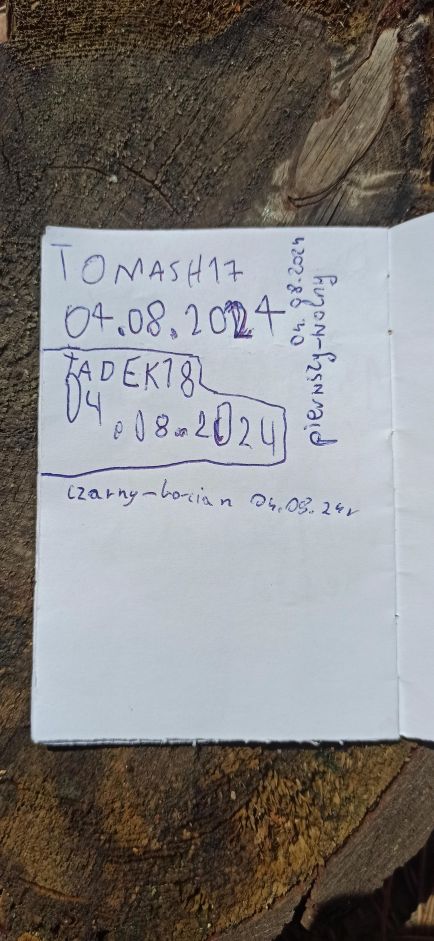 TOMASH17
04.08.2024
TADEK18
04.08.2024
czarny-bocian 04.08.24r
pierwszy-wolny
04.08.2024